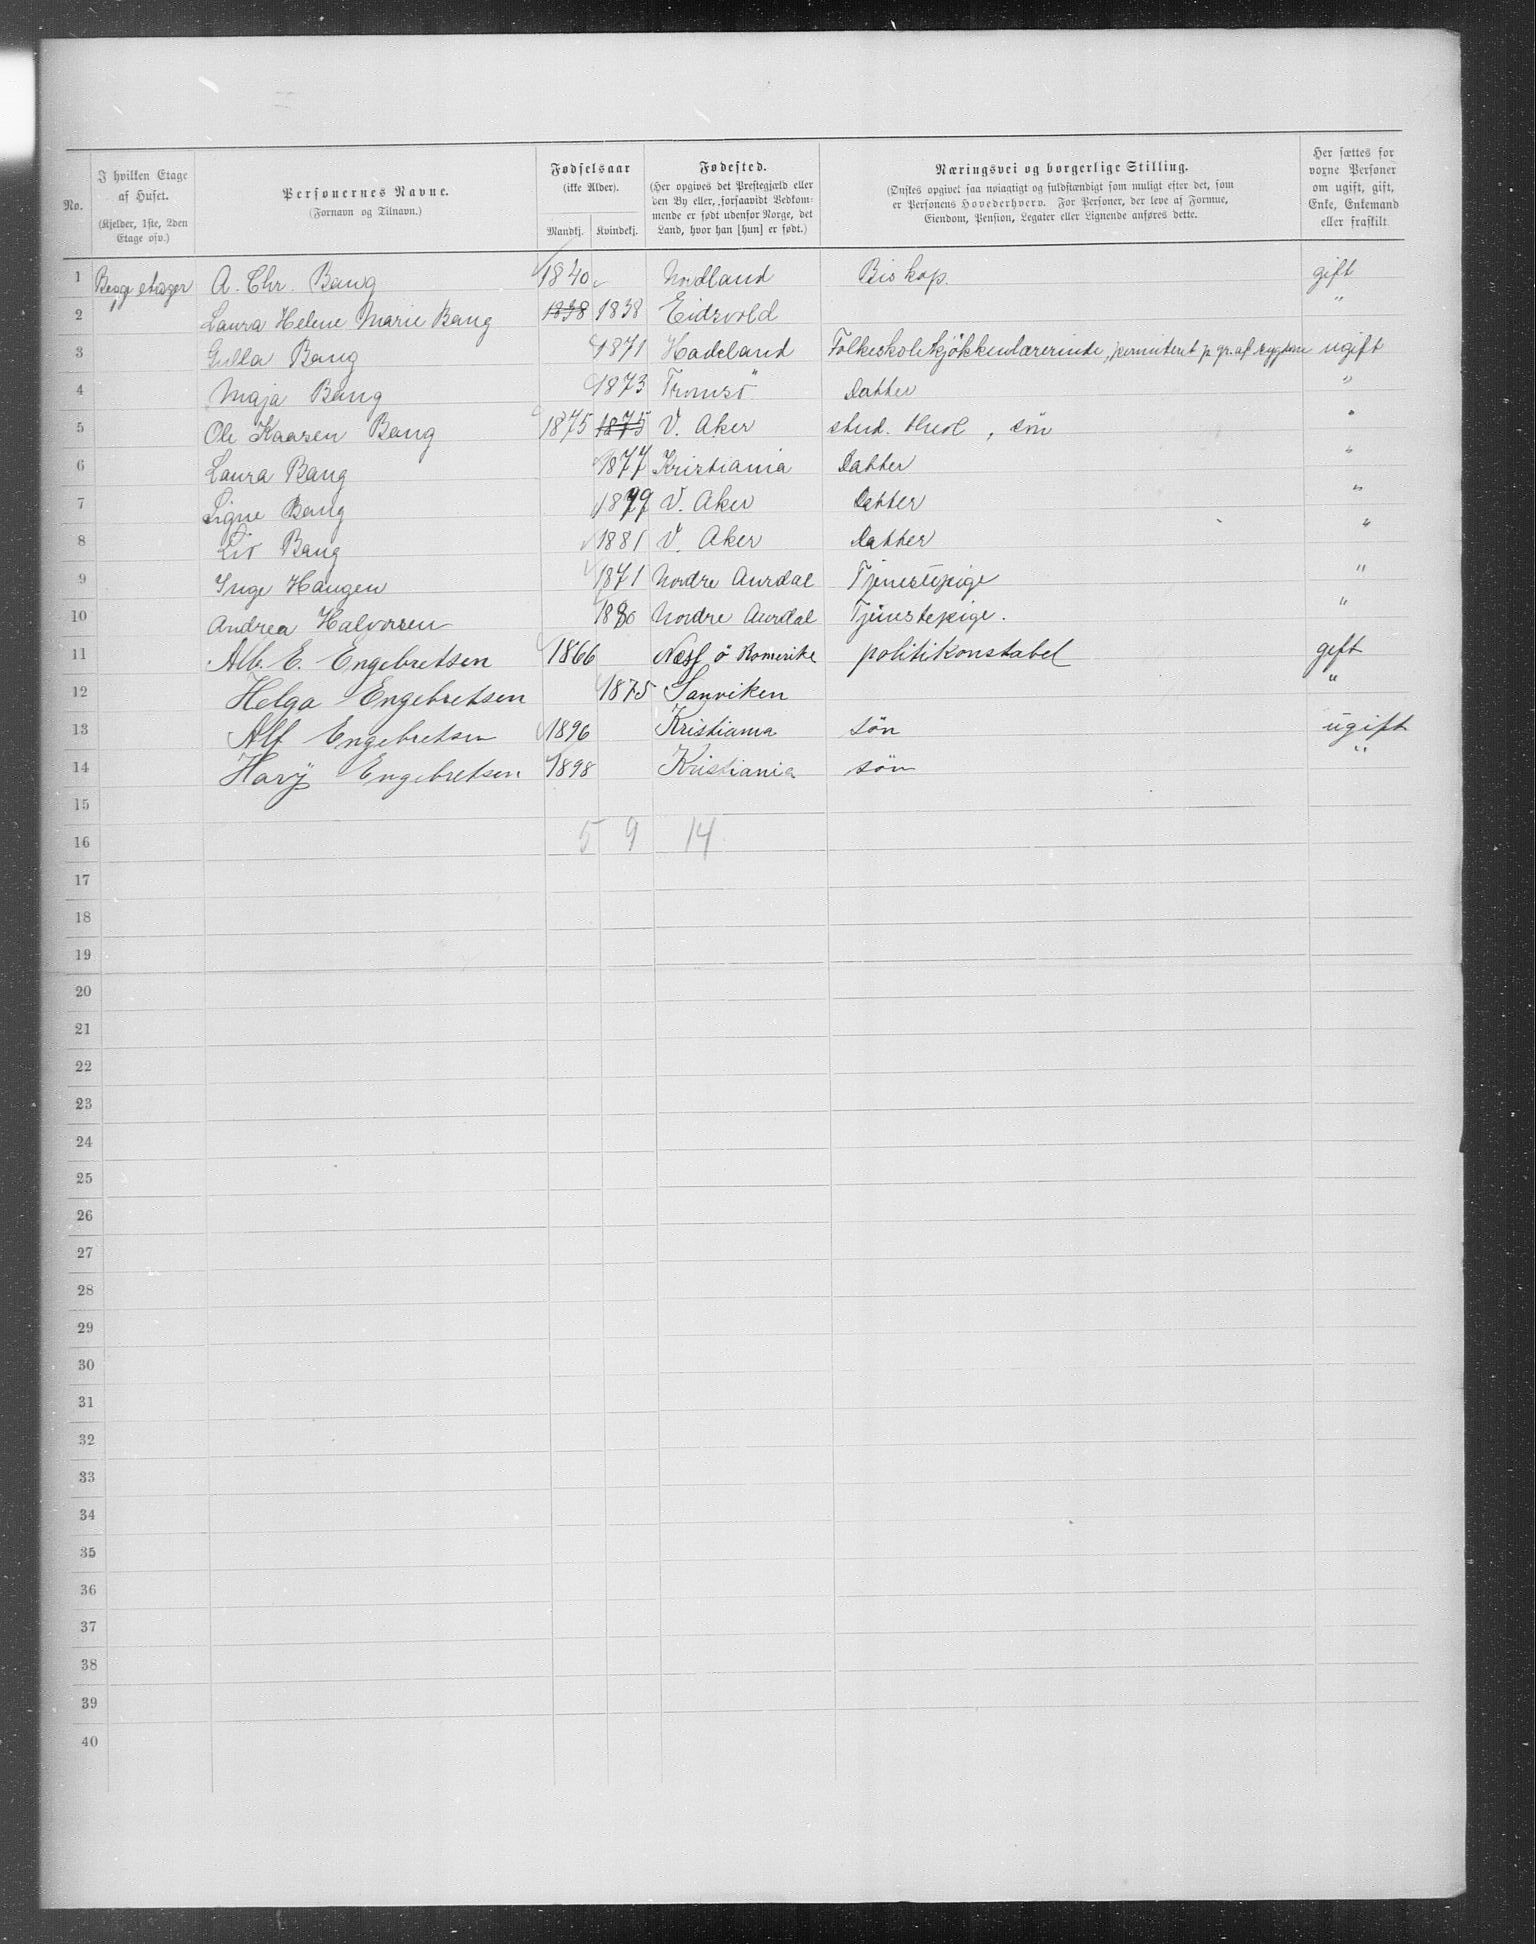 No.
I hvilken Etage af Huset.
(Kjelder, 1ste, 2den Etage osv.)
Personernes Navne.
(Fornavn og Tilnavn.)
Fødselsaar
(ikke Alder).
Mandkj. Kvindekj.
Fødested.
(Her opgives det Prestegjæld eller
den By eller, forsaavidt Vedkom-
mende er født udenfor Norge, det
Land, hvor han [hun] er født.)
Næringsvei og borgerlige Stilling.
(Ønskes opgivet saa nøiagtigt og fuldstændigt som muligt efter det, som
er Personens Hovederhverv. For Personer, der leve af Formue,
Eiendom, Pension, Legater eller Lignende anføres dette.
Her sættes for
voxne Personer
om ugift, gift,
Enke, Enkemand
eller fraskilt.
1 Begge etager A. Chr. Bang 1840 Nordland Biskop. gift
2 Laura Helene Marie Bang 1838 1838 Eidsvold "
3 Gulla Bang 1871 Hadeland Folkeskolekjøkkenlærerinde, permiteret p. gr. af sygdom ugift
4 Maja Bang 1873 Tromsö Datter "
5 Ole Kaaren Bang 1875 1875 V. Aker stud. theol, sön "
6 Laura Bang 1877 Kristiania Datter "
7 Signe Bang 1879 V. Aker Datter "
8 Liv Bang 1881 V. Aker Datter "
9 Inge Haugen 1871 Nordre Aurdal Tjenestepige "
10 Andrea Halvorsen 1880 Nordre Aurdal Tjenestepige. "
11 Alb. E. Engebretsen 1866 Næss ö Romerike politikonstabel gift
12 Helga Engebretsen 1875 Sanviken "
13 Alf Engebretsen 1896 Kristiania sön ugift
14 Harÿ Engebretsen 1898 Kristiania sön "
15
16 5 9 14
17
18
19
20
21
22
23
24
25
26
27
28
29
30
31
32
33
34
35
36
37
38
39
40